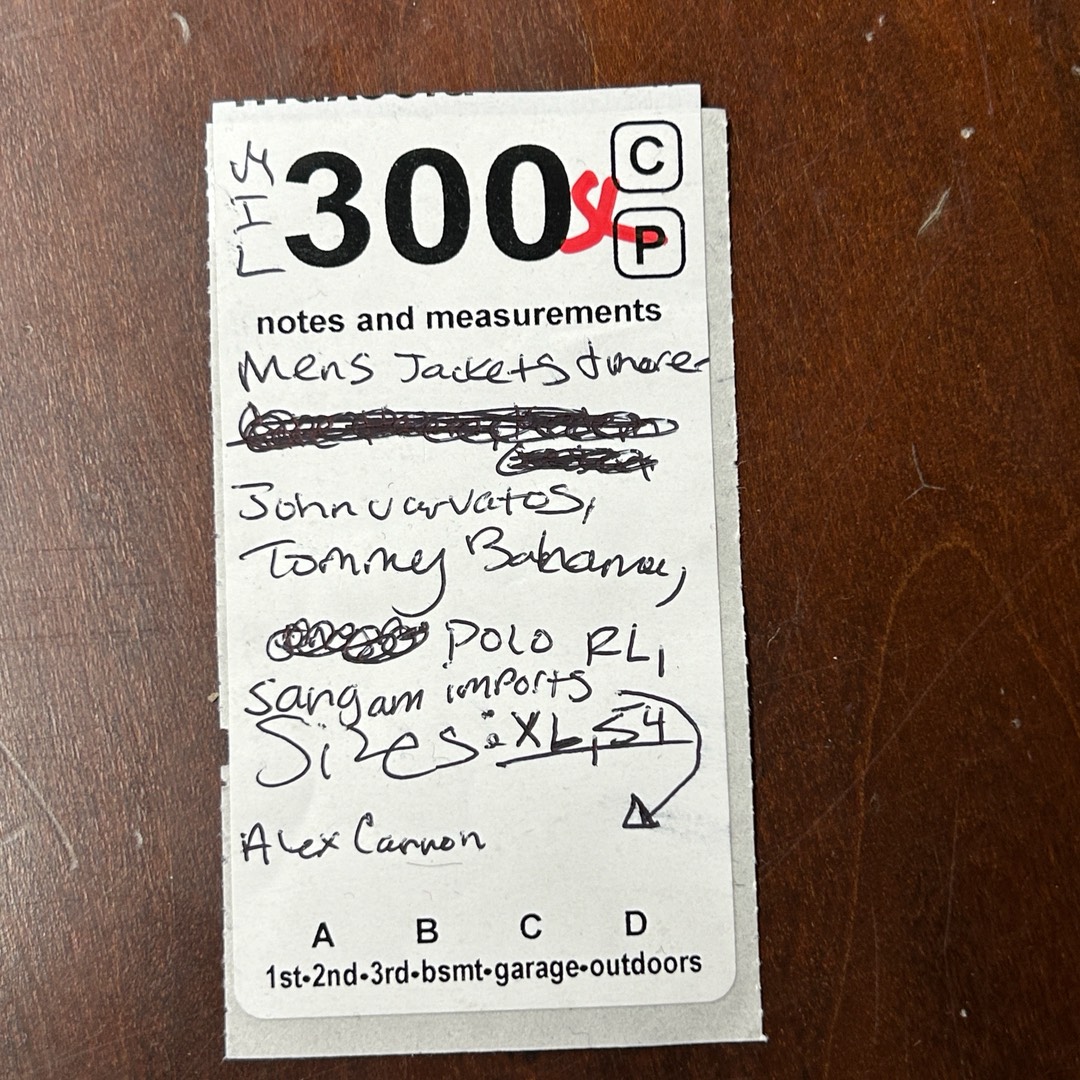 300
C
P
notes and measurements
Mens Jackets & more-
John varvatos,
Tommy Bahama,
POLO RL,
Sangam imports
Sizes: XL, 54
Alex Cannon
A B C D
1st•2nd•3rd•bsmt•garage•outdoors